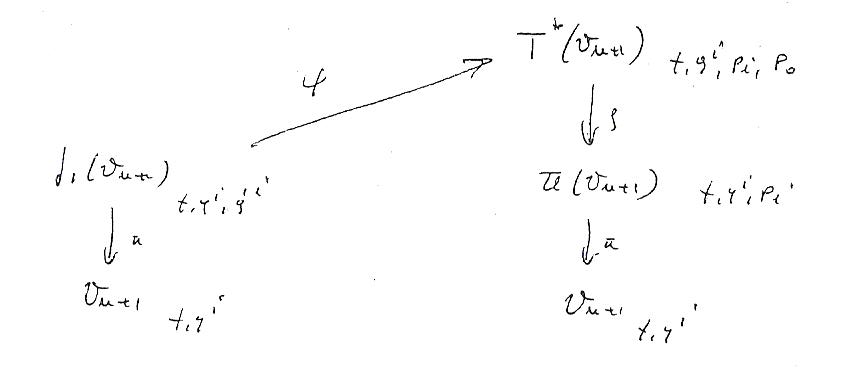 T*(V_{n+1}) t, q^i, p_i, p_0
ψ
ρ
j_1(V_{n+1}) t, q^i, q̇^i
π(V_{n+1}) t, q^i, p_i
π
π̄
V_{n+1} t, q^i
V_{n+1} t, q^i